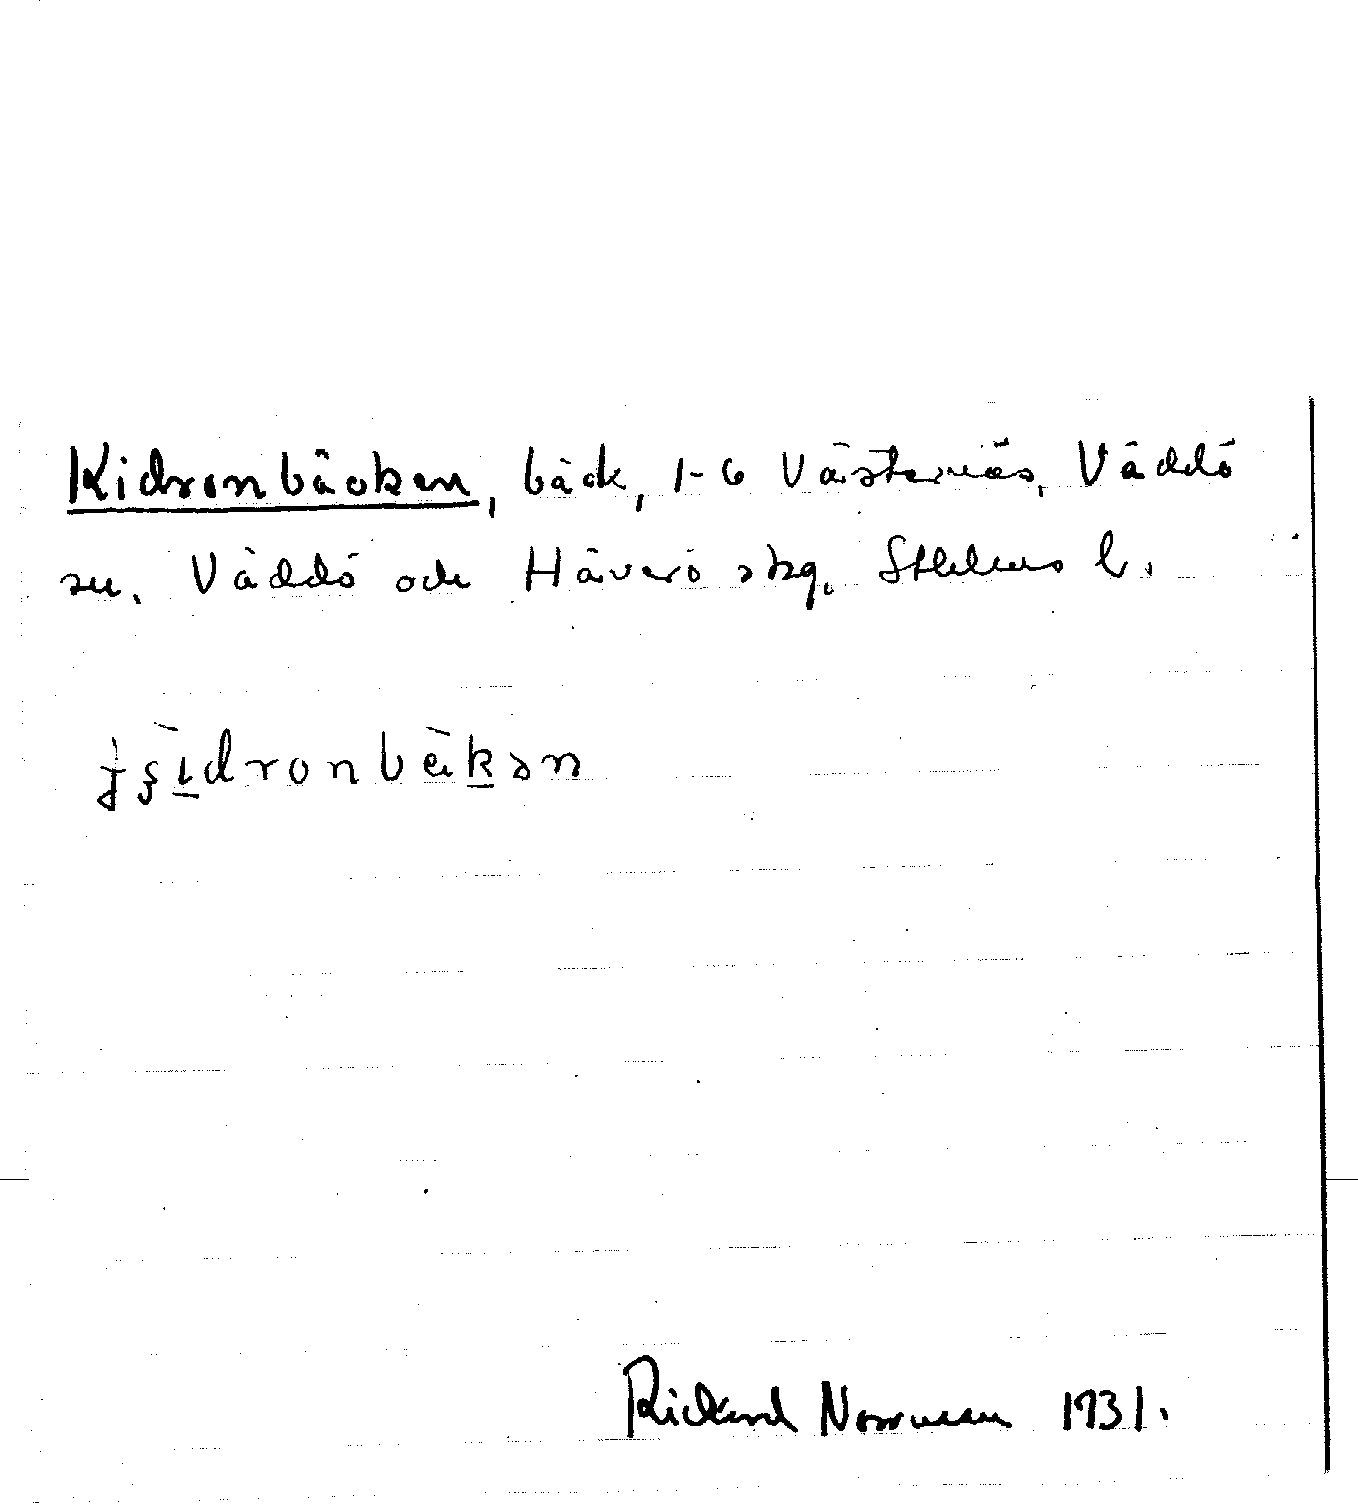 Kidronbäcken, bäck, 1-6 Västernäs, Väddö
sn. Väddö och Häverö skg. Sthlms l.
bäkən
Rickard Norrman 1931.